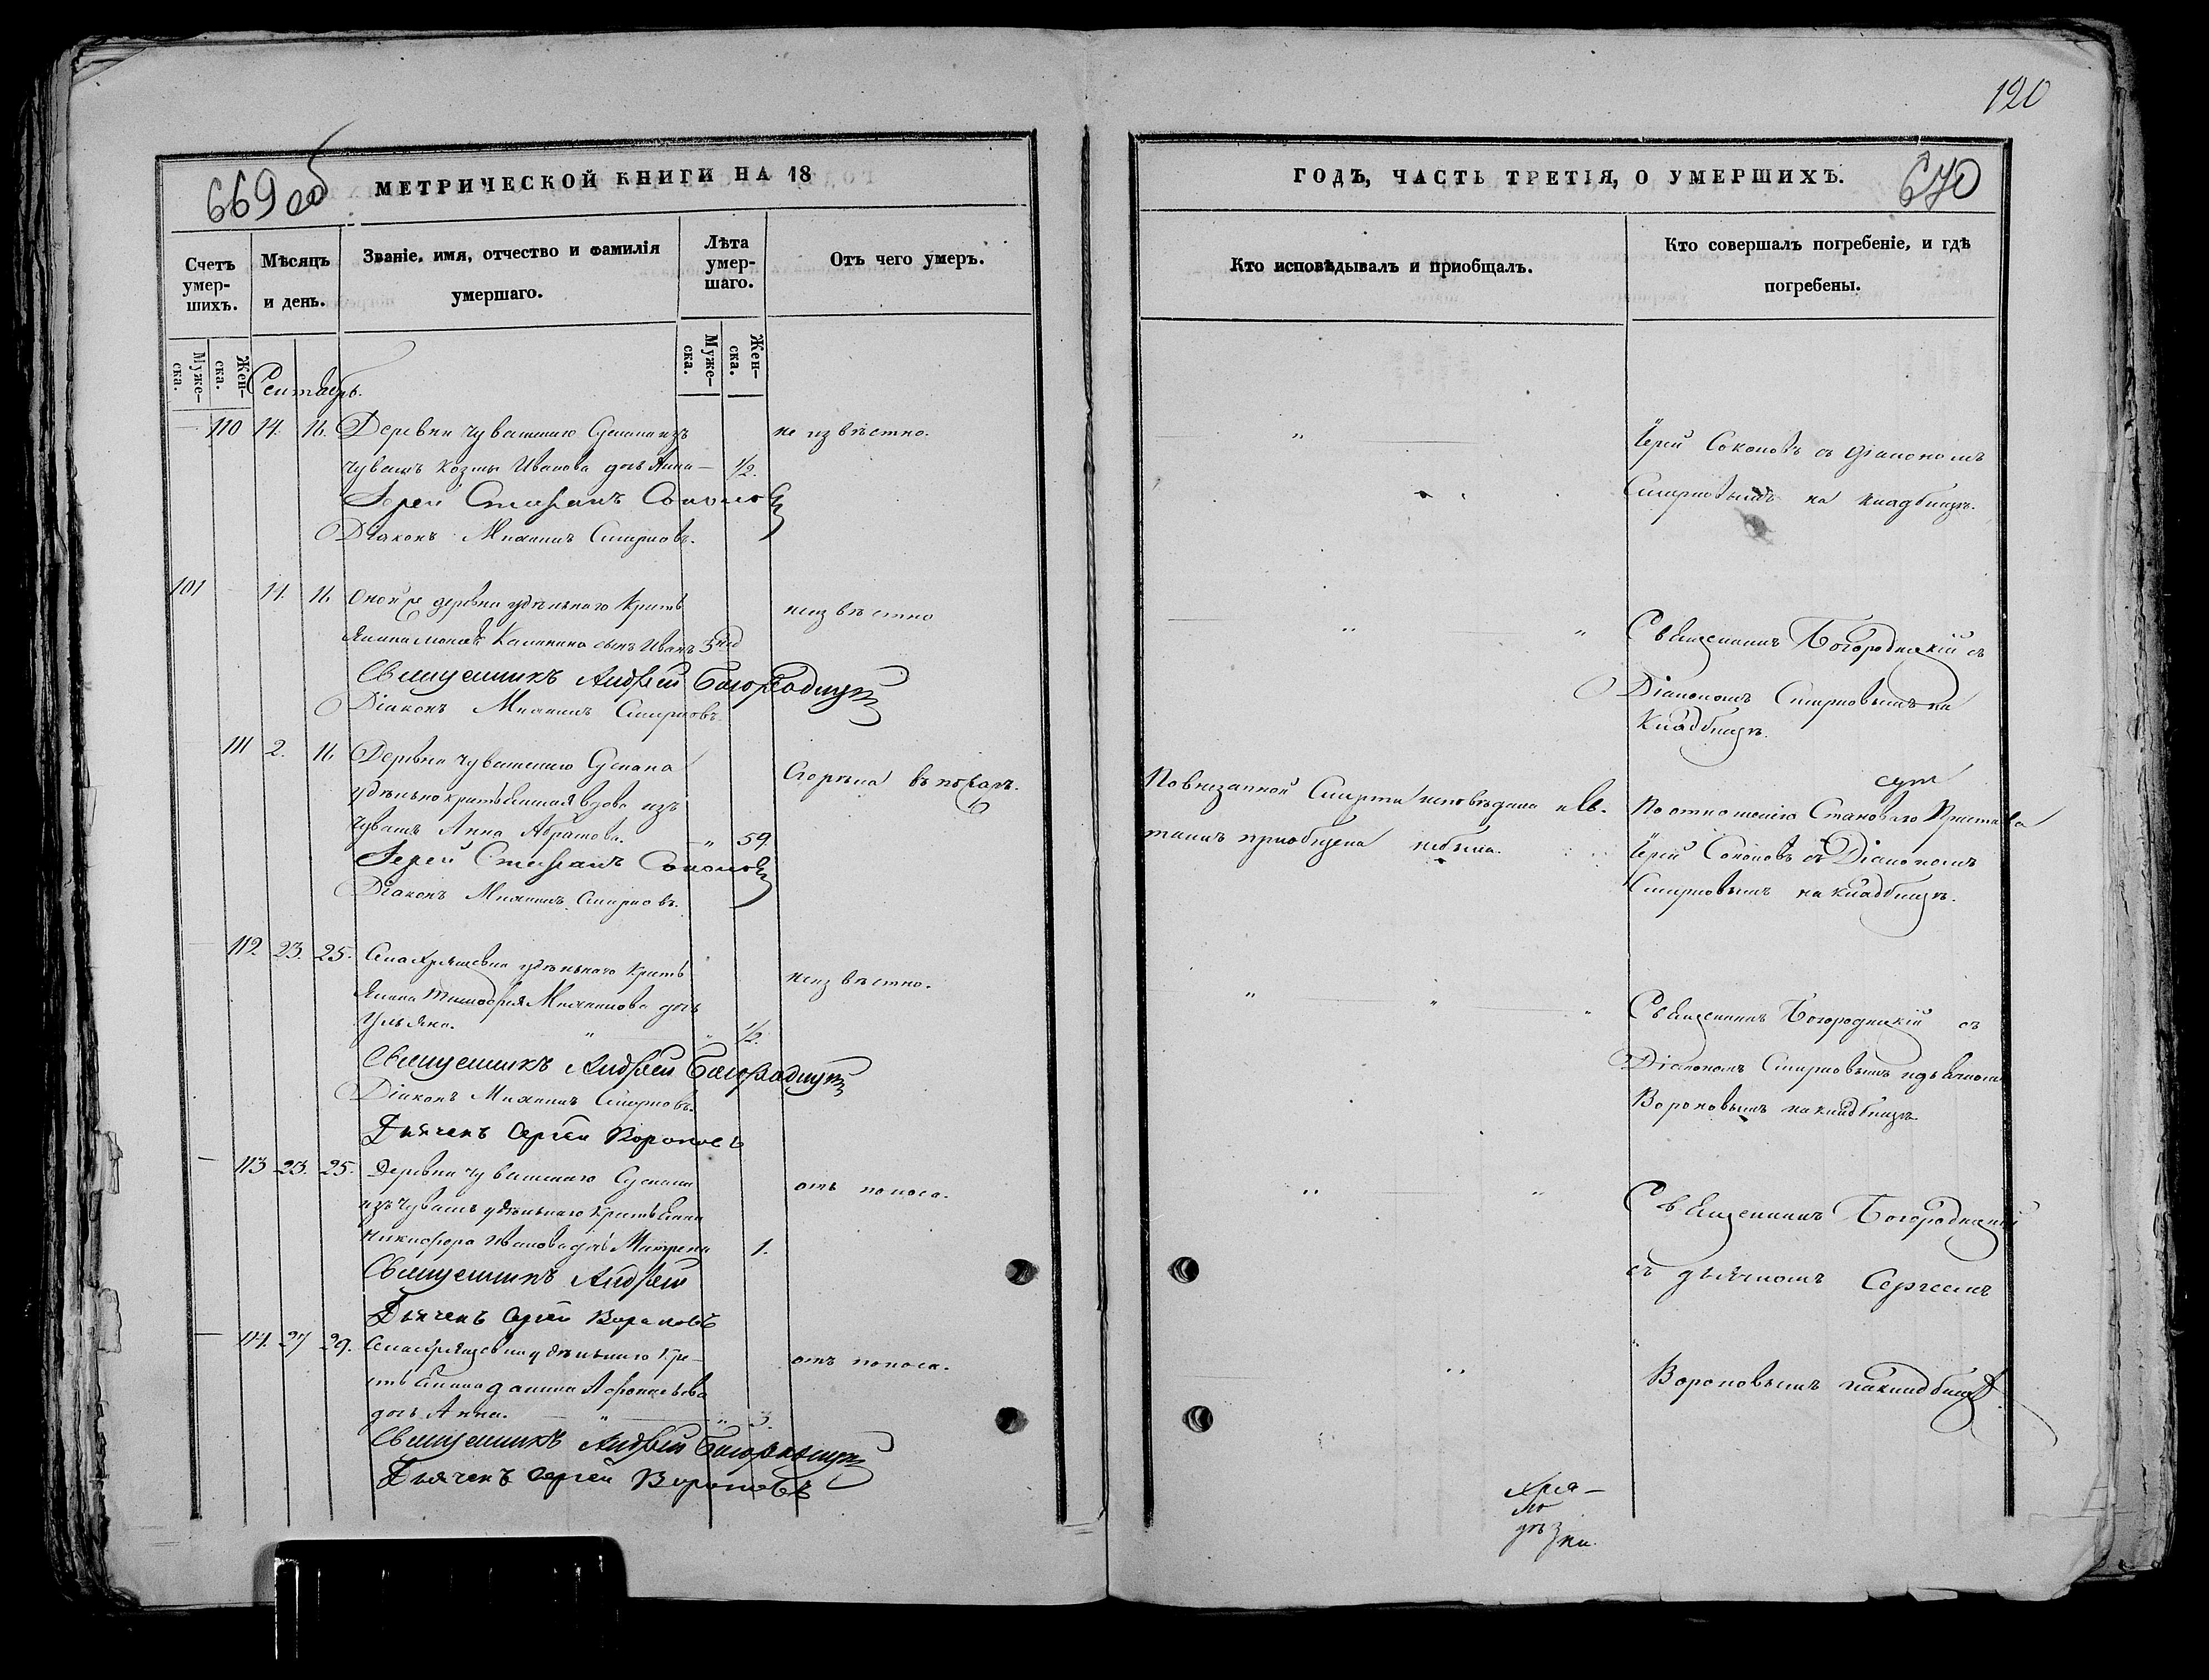 120
669 об
МЕТРИЧЕСКОЙ КНИГИ НА 18
ГОДЪ, ЧАСТЬ ТРЕТІЯ, О УМЕРШИХЪ.
670
Счетъ умер-шихъ.
Мѣсяцъ и день.
Званіе, имя, отчество и фамилія умершаго.
Лѣта умер-шаго.
Отъ чего умеръ.
Кто исповѣдывалъ и приобщалъ.
Кто совершалъ погребеніе, и гдѣ погребены.
Муже-ска.
Жен-ска.
Муже-ска.
Жен-ска.
Сентябрь.
110 14. 16. Деревни Чувашскаго
не извѣстно.
Іерей Соколовъ съ Діакономъ
Чувашъ Козмы Иванова дочь Анна — 1/2.
Смирновымъ на кладбищѣ.
Іерей Стефанъ Соколовъ
Діаконъ Михаилъ Смирновъ.
101 14. 16. Оной же деревни удѣльнаго Крестъ
неизвѣстно
Калинина сынъ Иванъ 3 нед
Священникъ Богородицкій съ
Священникъ Андрей Богородицкій
Діакономъ Смирновымъ на
Діаконъ Михаилъ Смирновъ.
Кладбищѣ.
111 2. 16. Деревни Чувашскаго
Сгорѣла въ пожарѣ.
По внезапной Смерти исповѣдана и Св.
По отношенію Становаго Пристава
удѣльнокрестьянская вдова изъ
Чувашъ Анна Абрамова. — „ 59.
таинъ приобщена небыла.
Іерей Соколовъ съ Діакономъ
Іерей Стефанъ Соколовъ
Смирновымъ на кладбищѣ.
Діаконъ Михаилъ Смирновъ.
112 23. 25. Села Хрящевки удѣльнаго Крестъ
неизвѣстно.
янина Тимофея Михаилова дочь
Священникъ Богородицкій съ
Ульяна. „ „ 1/2.
Священникъ Андрей Богородицкій
Діакономъ Смирновымъ и дьячкомъ
Діаконъ Михаилъ Смирновъ.
Вороновымъ на кладбищѣ
Дьячекъ Сергей Вороновъ
113 23. 25. Деревни Чувашскаго
отъ поноса.
изъ Чувашъ удѣльнаго Крестьянина
Священникъ Богородицкій
Никифора Иванова дочь Матрена 1.
Священникъ Андрей
съ дьячкомъ Сергеемъ
Дьячекъ Сергей Вороновъ
114. 27 29. Села Хрящевки удѣльнаго Кре-
отъ поноса.
стьянина Данила Афонасьева
Вороновымъ на кладбищѣ.
дочь Анна. — „ — „ 3.
Священникъ Андрей Богородицкій
Дьячекъ Сергей Вороновъ